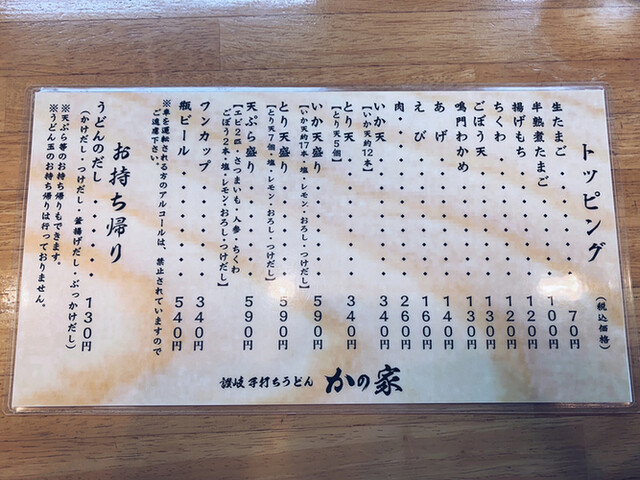 トッピング
(税込価格)
生たまご・・・・・・・70円
半熟煮たまご・・・・100円
揚げもち・・・・・・・120円
ちくわ・・・・・・・・120円
ごぼう天・・・・・・・130円
鳴門わかめ・・・・・130円
あげ・・・・・・・・・140円
えび・・・・・・・・・160円
肉・・・・・・・・・・260円
いか天・・・・・・・・340円
【いか天約12本】
とり天・・・・・・・・340円
【とり天5個】
いか天盛り・・・・・590円
【いか天約17本・塩・レモン・おろし・つけだし】
とり天盛り・・・・・590円
【とり天7個・塩・レモン・おろし・つけだし】
天ぷら盛り・・・・・590円
【エビ2匹・さつまいも・人参・ちくわ
ごぼう2本・塩・レモン・おろし・つけだし】
ワンカップ・・・・・340円
瓶ビール・・・・・・540円
※車を運転される方のアルコールは、禁止されていますので
ご遠慮下さい。
お持ち帰り
うどんのだし・・・・・130円
(かけだし・つけだし・釜揚げだし・ぶっかけだし)
※天ぷら等のお持ち帰りもできます。
※うどん玉のお持ち帰りは行っておりません。
讃岐手打ちうどん かの家